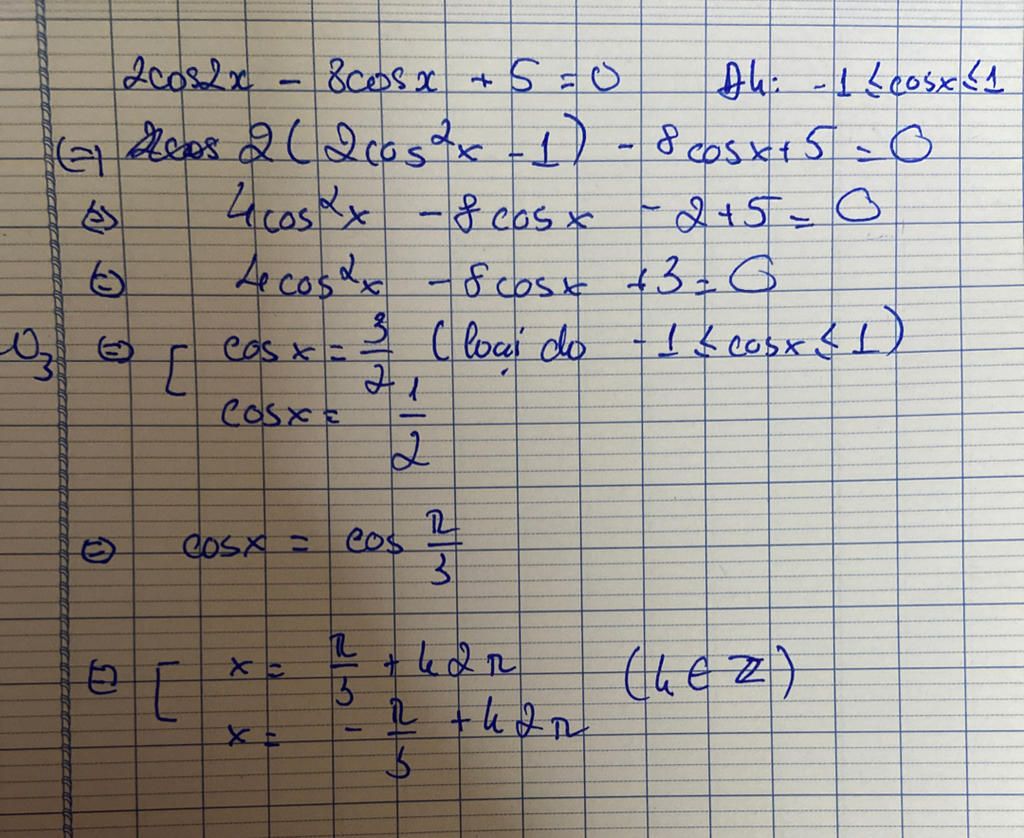 2cos2x - 8cosx + 5 = 0 Đk: -1 ≤ cosx ≤ 1
⇔ 2(2cos²x - 1) - 8cosx + 5 = 0
⇔ 4cos²x - 8cosx - 2 + 5 = 0
⇔ 4cos²x - 8cosx + 3 = 0
⇔ [ cosx = 3/2 (loại do -1 ≤ cosx ≤ 1)
cosx = 1/2
⇔ cosx = cos π/3
⇔ [ x = π/3 + k2π (k ∈ ℤ)
x = -π/3 + k2π